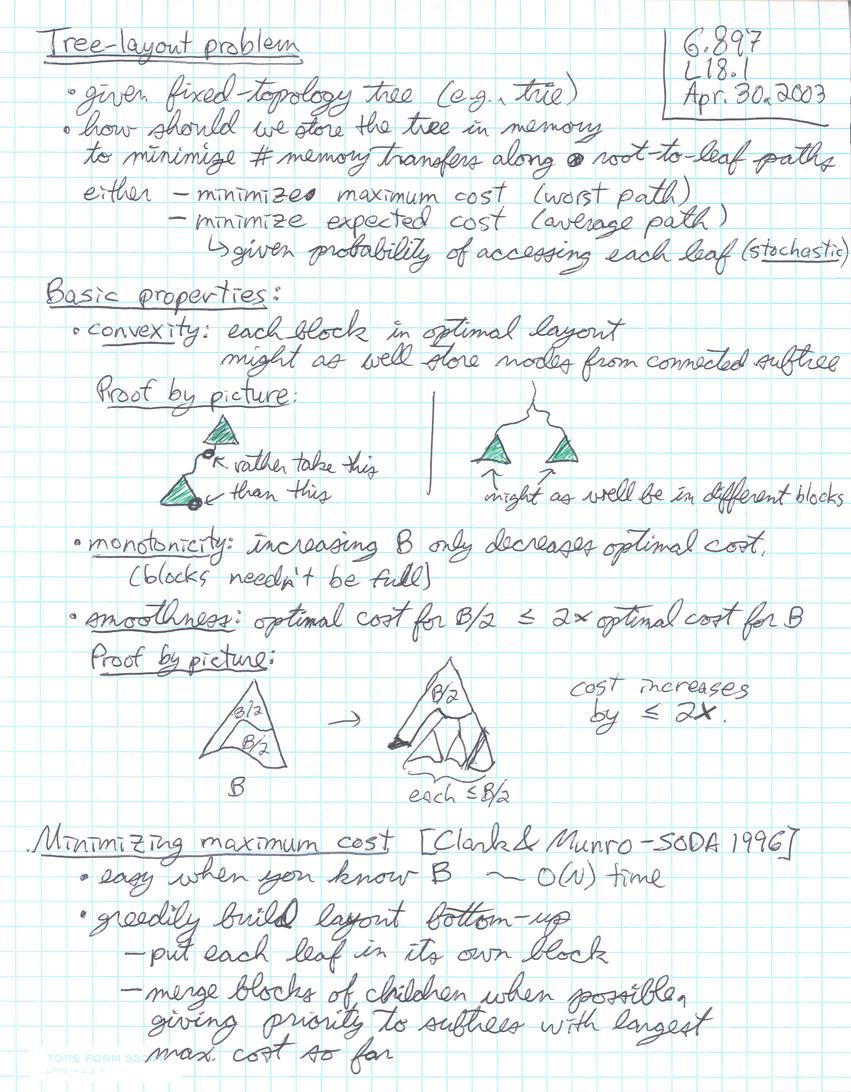 Tree-layout problem
6.897
L18.1
Apr. 30, 2003
• given fixed-topology tree (e.g., trie)
• how should we store the tree in memory
to minimize # memory transfers along root-to-leaf paths
either – minimize maximum cost (worst path)
– minimize expected cost (average path)
↳ given probability of accessing each leaf (stochastic)
Basic properties:
• convexity: each block in optimal layout
might as well store nodes from connected subtree
Proof by picture:
rather take this
than this
might as well be in different blocks
• monotonicity: increasing B only decreases optimal cost.
(blocks needn't be full)
• smoothness: optimal cost for B/2 ≤ 2× optimal cost for B
Proof by picture:
B/2
B/2
B
→
B/2
each ≤ B/2
cost increases
by ≤ 2×.
Minimizing maximum cost [Clark & Munro – SODA 1996]
• easy when you know B ~ O(N) time
• greedily build layout bottom-up
– put each leaf in its own block
– merge blocks of children when possible,
giving priority to subtrees with largest
max. cost so far